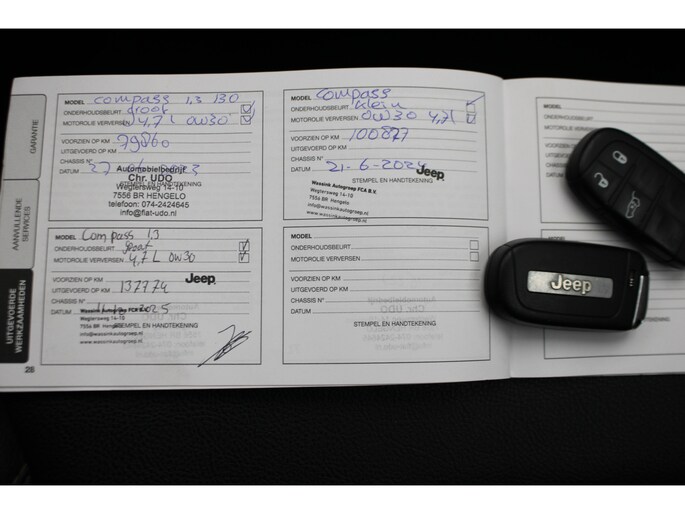 GARANTIE
AANVULLENDE SERVICES
UITGEVOERDE WERKZAAMHEDEN
28
MODEL Compass 1,3 130
ONDERHOUDSBEURT groot
MOTOROLIE VERVERSEN 4,7 L 0W30
VOORZIEN OP KM
UITGEVOERD OP KM 79860
CHASSIS N°
DATUM
Automobielbedrijf
Chr. UDO
STEMPEL EN HANDTEKENING
Wegtersweg 14-10
7556 BR HENGELO
telefoon: 074-2424645
info@fiat-udo.nl
MODEL Compass
ONDERHOUDSBEURT klein
MOTOROLIE VERVERSEN 0W30 4,7l
VOORZIEN OP KM
UITGEVOERD OP KM 100877
CHASSIS N°
DATUM 21-6-2024
Jeep
STEMPEL EN HANDTEKENING
Wassink Autogroep FCA B.V.
Wegtersweg 14-10
7556 BR Hengelo
info@wassinkautogroep.nl
www.wassinkautogroep.nl
MODEL Compass 1.3
ONDERHOUDSBEURT groot
MOTOROLIE VERVERSEN 4,7 L 0W30
VOORZIEN OP KM
Jeep
UITGEVOERD OP KM 137774
CHASSIS N°
DATUM 2025
Wassink Autogroep FCA B.V.
Wegtersweg 14-10
7556 BR Hengelo
STEMPEL EN HANDTEKENING
info@wassinkautogroep.nl
www.wassinkautogroep.nl
MODEL
ONDERHOUDSBEURT
MOTOROLIE VERVERSEN
VOORZIEN OP KM
UITGEVOERD OP KM
CHASSIS N°
DATUM
STEMPEL EN HANDTEKENING
MODEL
ONDERHOUDSBEURT
MOTOROLIE VERVERSEN
VOORZIEN OP KM
UITGEVOERD OP KM
CHASSIS N°
DATUM
Jeep